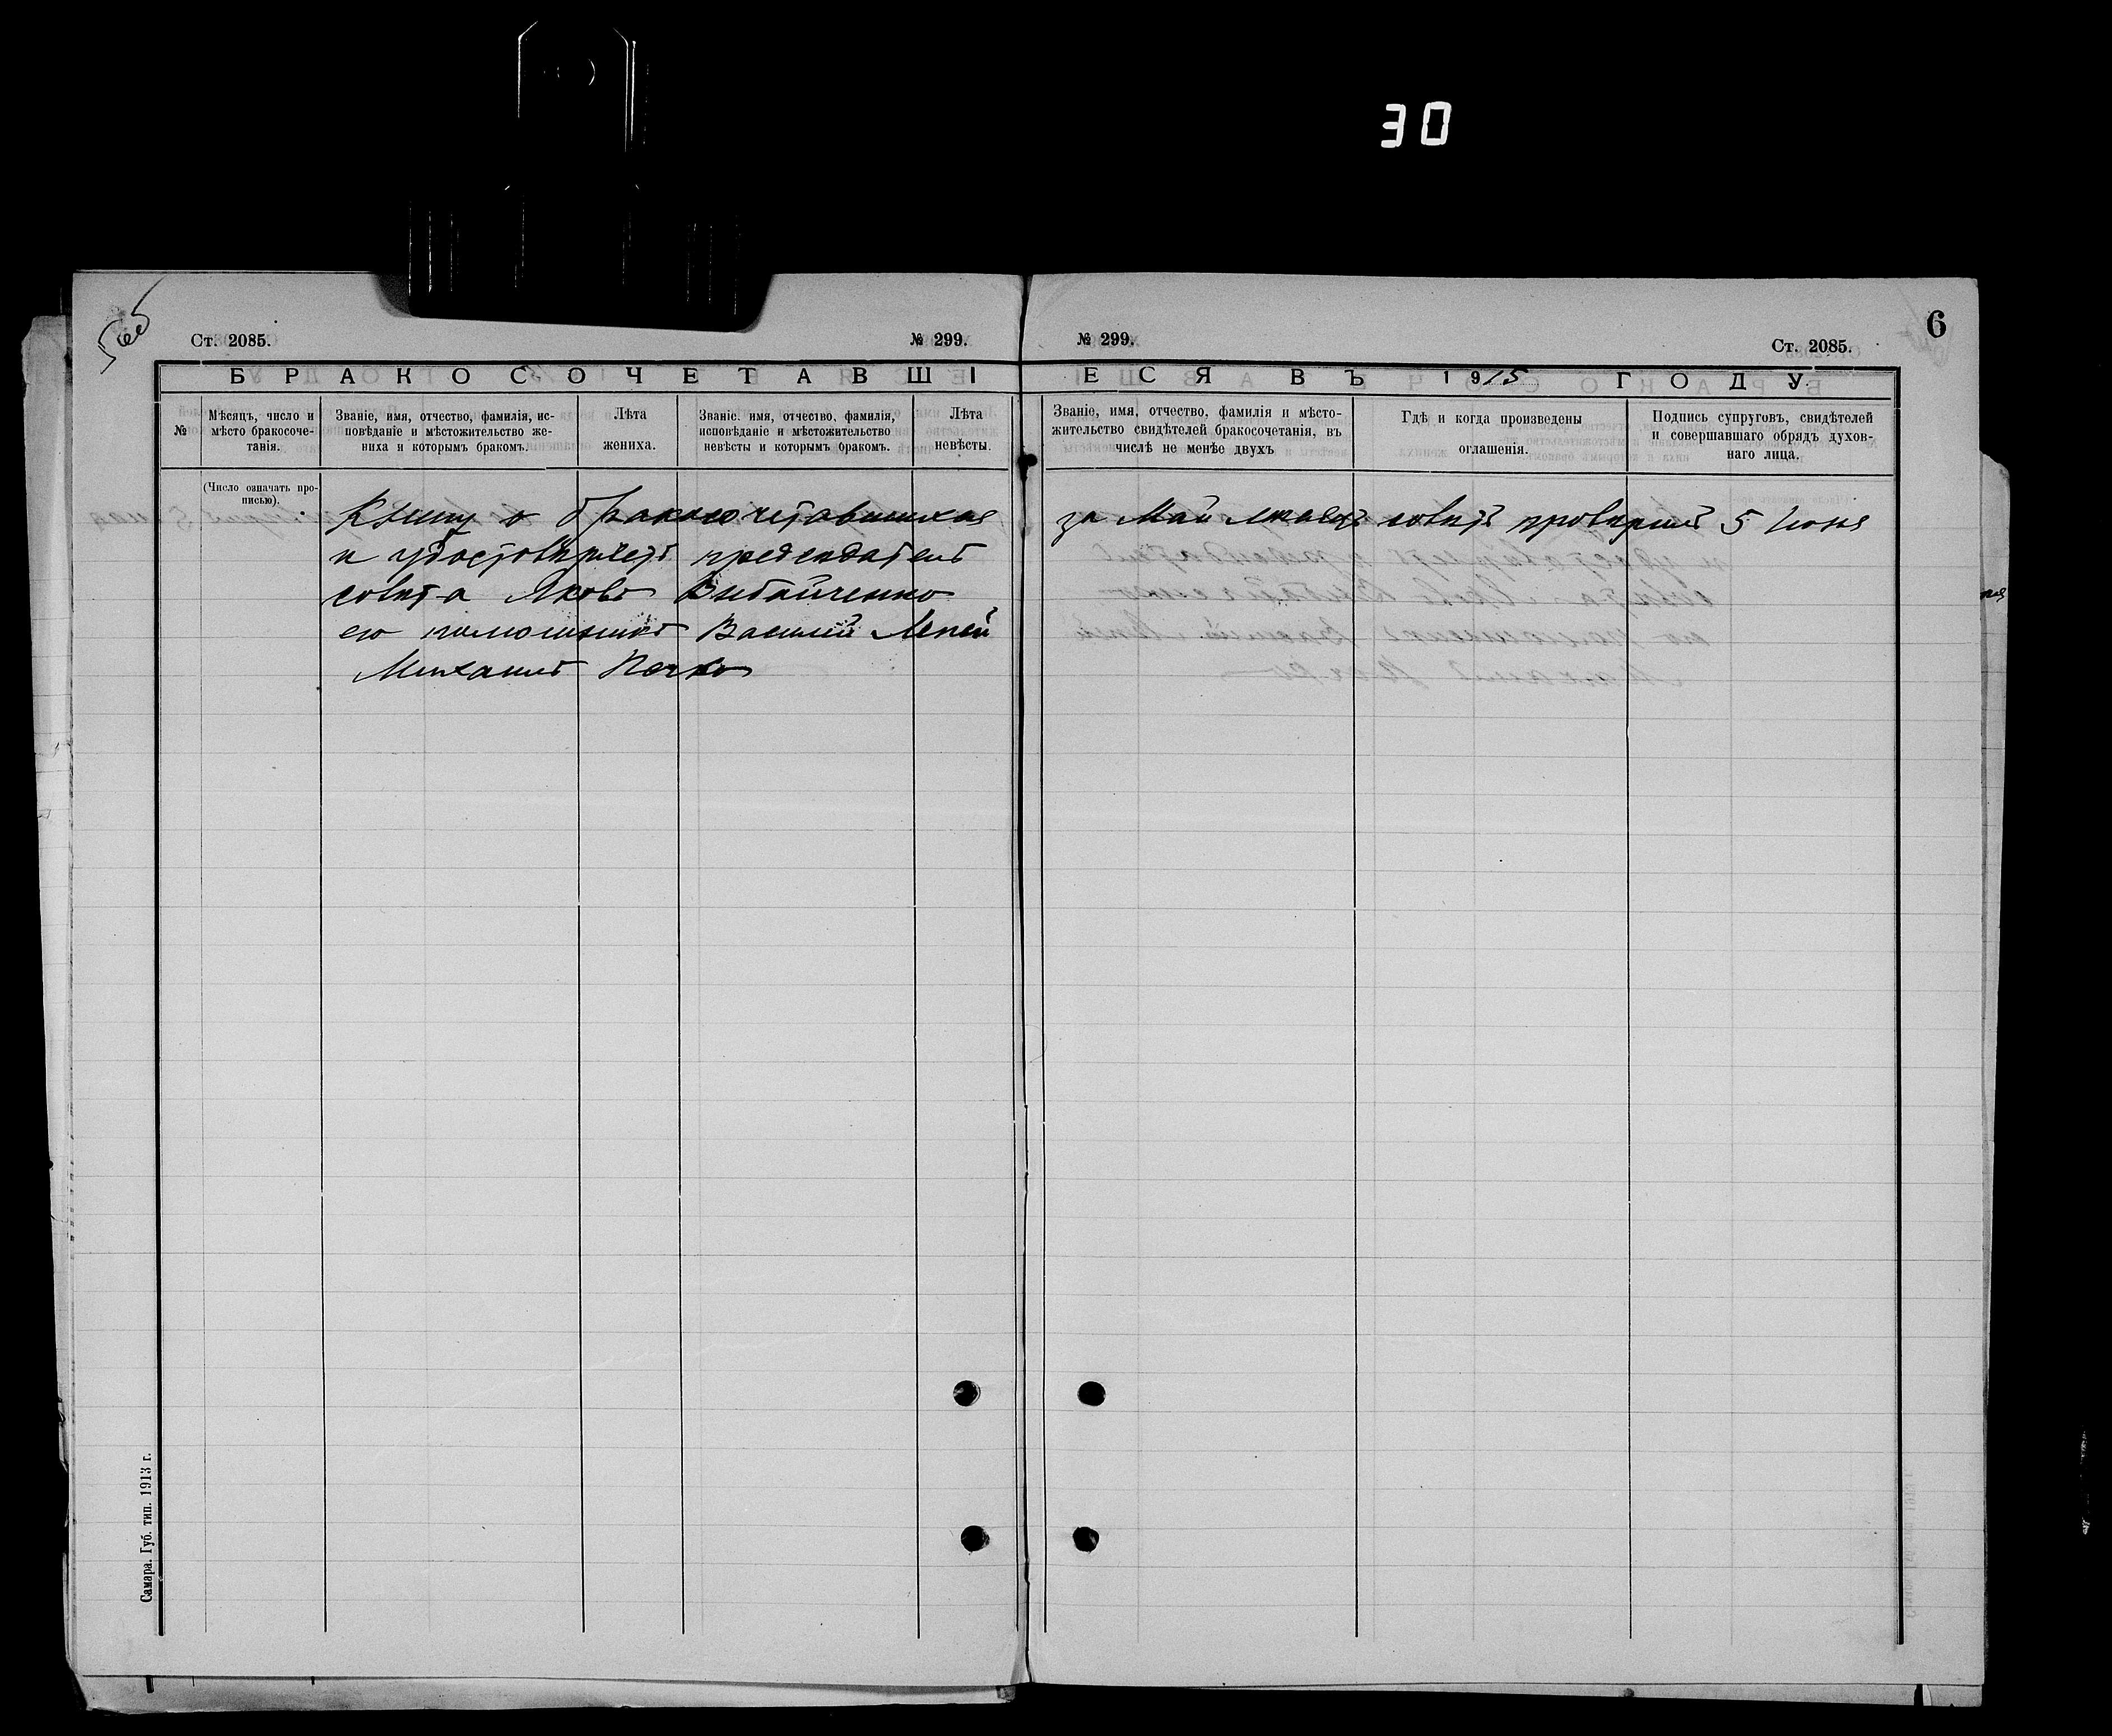 30
6
Ст. 2085.
№ 299.
№ 299.
Ст. 2085.
БРАКОСОЧЕТАВШІЕСЯ ВЪ 1915 ГОДУ.
№
Мѣсяцъ, число и
мѣсто бракосоче-
танія.
Званіе, имя, отчество, фамилія, ис-
повѣданіе и мѣстожительство же-
ниха и которымъ бракомъ.
Лѣта
жениха.
Званіе. имя, отчество, фамилія,
исповѣданіе и мѣстожительство
невѣсты и которымъ бракомъ.
Лѣта
невѣсты.
Званіе, имя, отчество, фамилія и мѣсто-
жительство свидѣтелей бракосочетанія, въ
числѣ не менѣе двухъ
Гдѣ и когда произведены
оглашенія.
Подпись супруговъ, свидѣтелей
и совершавшаго обрядъ духов-
наго лица.
(Число означать про-
писью).
Книгу о бракосочетавшихся за Май месяцъ советъ проверилъ 5 Июня
и удостоверяетъ председатель
совета Яковъ
его помошникъ Василий Лепей
Михаилъ
Самара. Губ. тип. 1913 г.